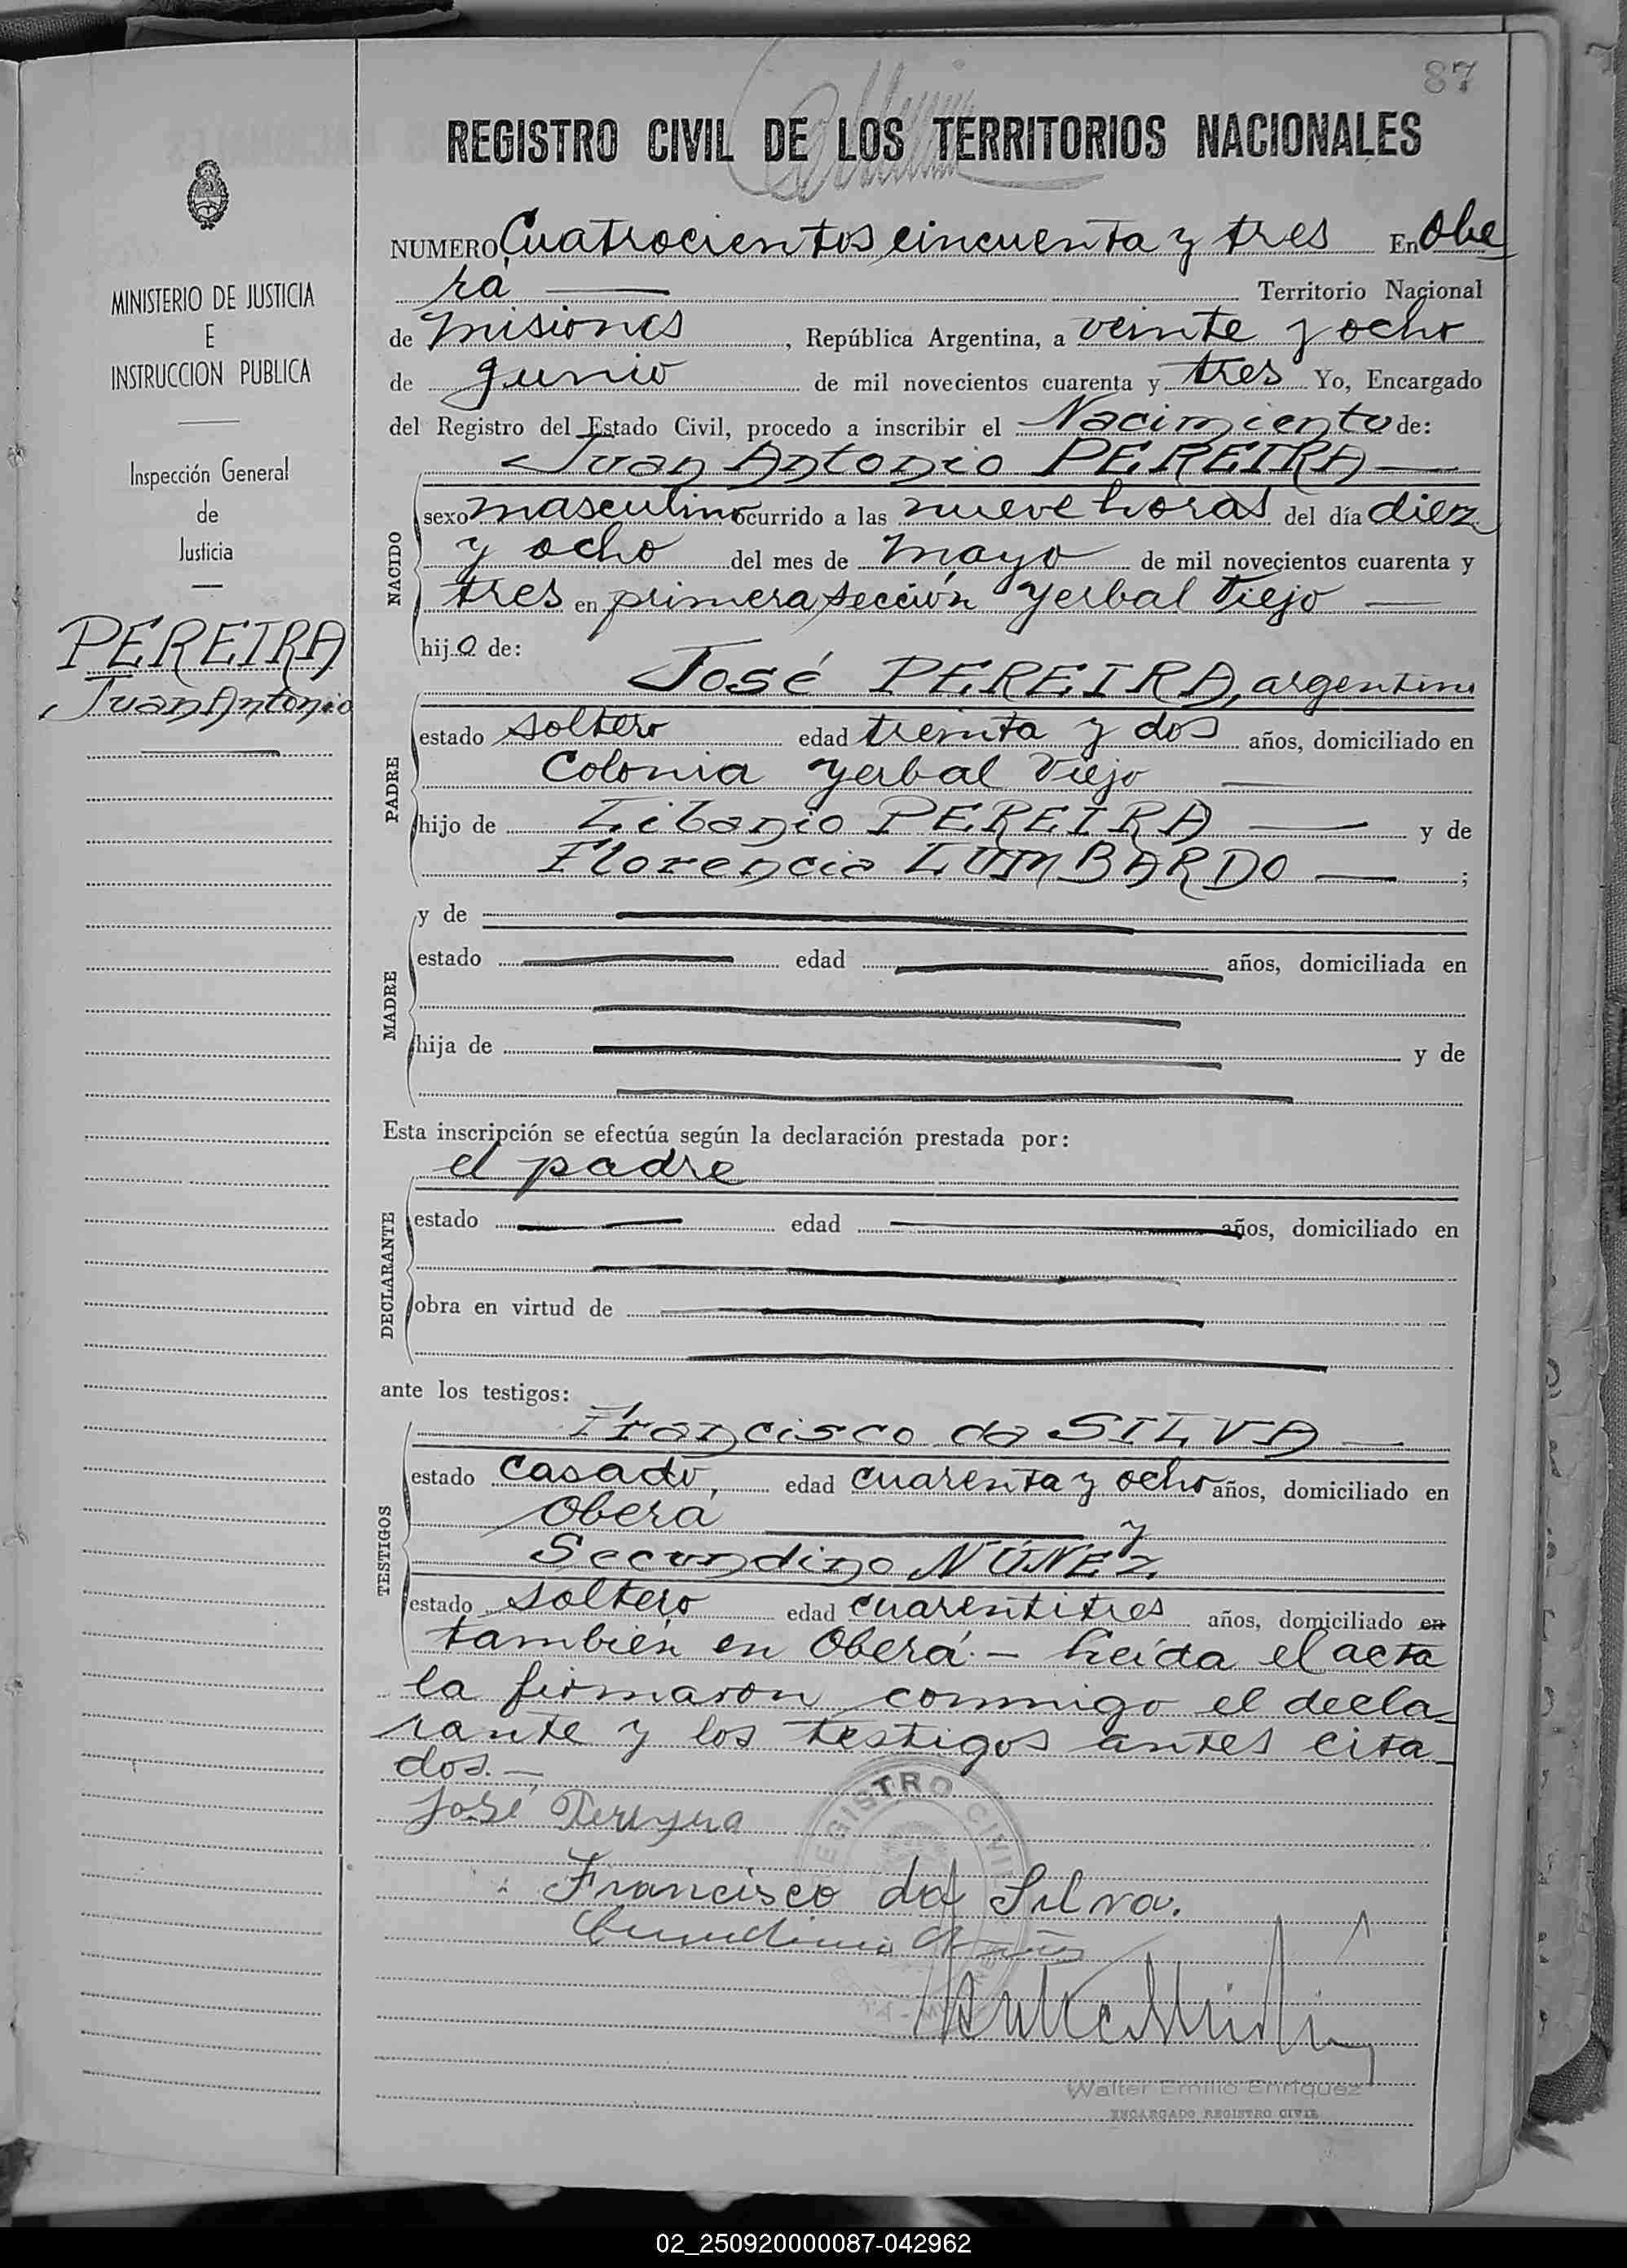 87
REGISTRO CIVIL DE LOS TERRITORIOS NACIONALES
MINISTERIO DE JUSTICIA
E
INSTRUCCION PUBLICA
Inspección General
de
Justicia
PEREIRA
Juan Antonio
NUMERO Cuatrocientos cincuenta y tres En Obe
rá Territorio Nacional
de Misiones, República Argentina, a veinte y ocho
de Junio de mil novecientos cuarenta y tres Yo, Encargado
del Registro del Estado Civil, procedo a inscribir el Nacimiento de:
NACIDO
Juan Antonio PEREIRA
sexo masculino ocurrido a las nueve horas del día diez
y ocho del mes de Mayo de mil novecientos cuarenta y
tres en primera sección Yerbal Viejo
hijo de:
PADRE
José PEREIRA, argentino
estado soltero edad treinta y dos años, domiciliado en
Colonia Yerbal Viejo
hijo de Libanio PEREIRA y de
Florencia LUMBARDO ;
MADRE
y de
estado edad años, domiciliada en
hija de y de
Esta inscripción se efectúa según la declaración prestada por:
DECLARANTE
el padre
estado edad años, domiciliado en
obra en virtud de
ante los testigos:
TESTIGOS
Francisco da SILVA
estado casado, edad cuarenta y ocho años, domiciliado en
Oberá y
Secundino NÚÑEZ
estado soltero edad cuarentitres años, domiciliado en
también en Oberá.- Leída el acta
la firmaron conmigo el decla-
rante y los testigos antes cita-
dos.-
José Pereyra
REGISTRO CIVIL
Francisco da Silva.
Walter Emilio Enriquez
ENCARGADO REGISTRO CIVIL
02_250920000087-042962